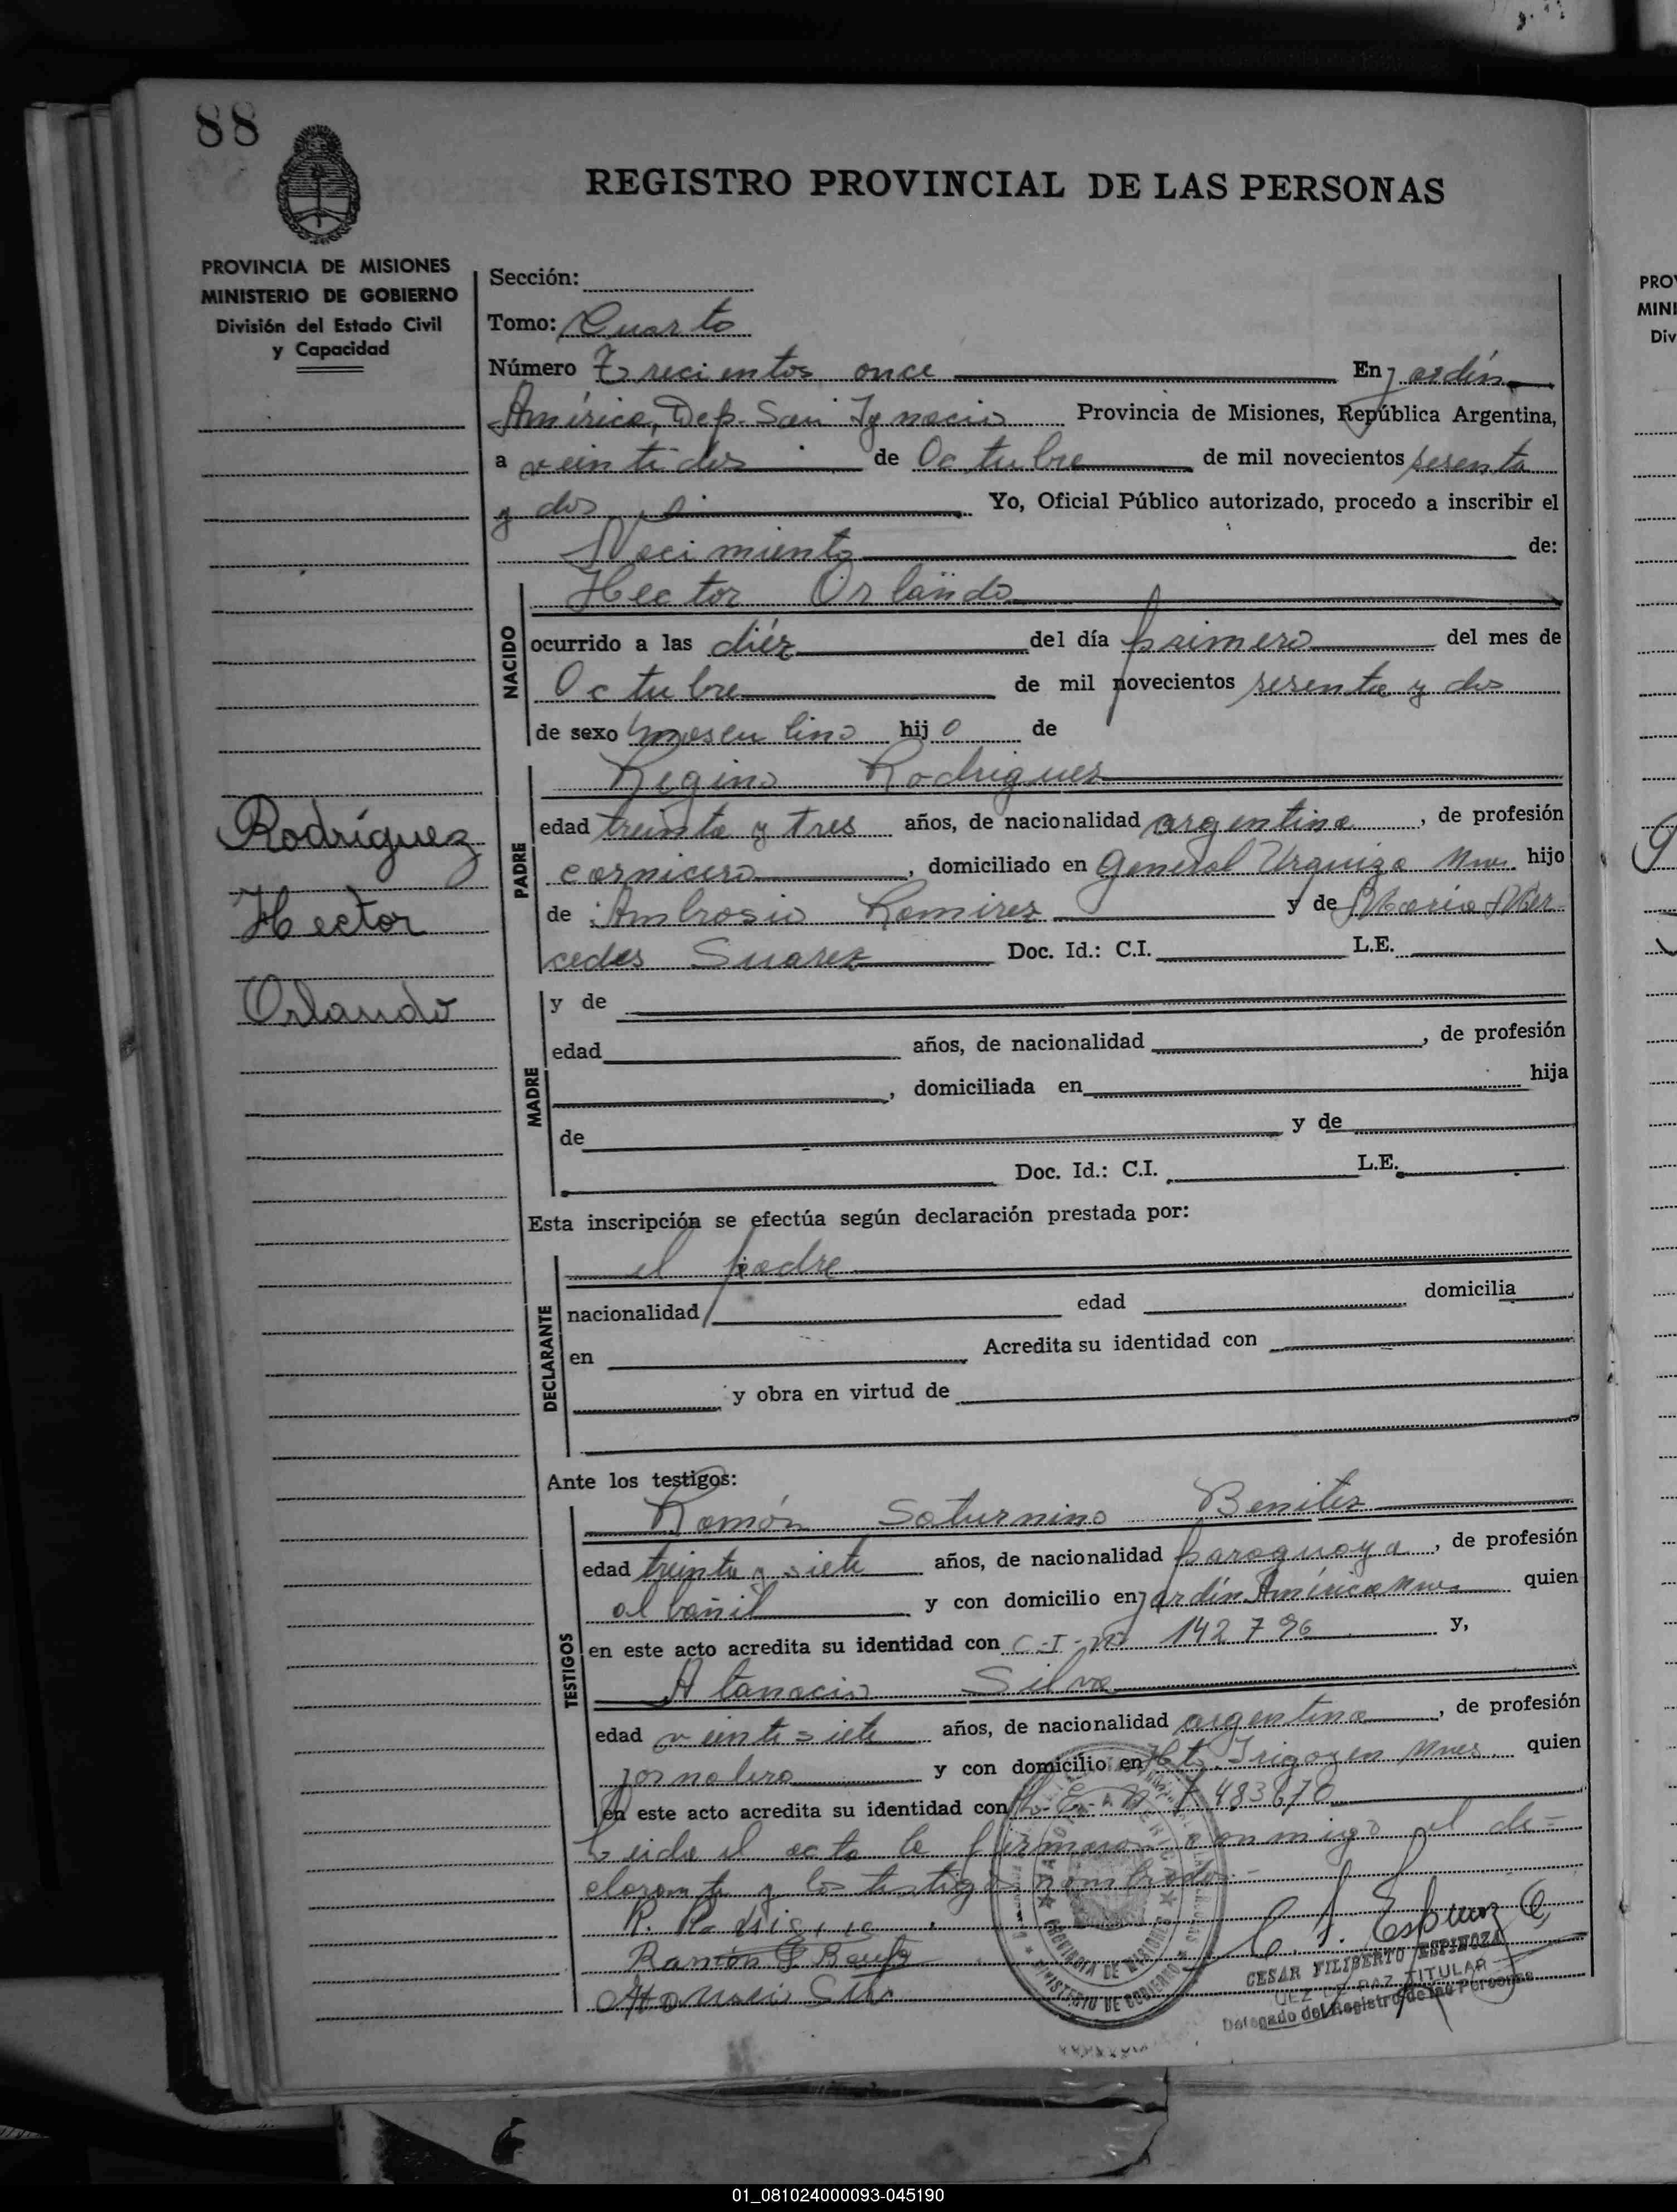 88
REGISTRO PROVINCIAL DE LAS PERSONAS
PROVINCIA DE MISIONES
MINISTERIO DE GOBIERNO
División del Estado Civil
y Capacidad
Sección:
Tomo: Cuarto
Número Trecientos once En Jardín
América, Dep. San Ignacio Provincia de Misiones, República Argentina,
a veintidos de Octubre de mil novecientos sesenta
y dos Yo, Oficial Público autorizado, procedo a inscribir el
Nacimiento de:
Hector Orlando
NACIDO
ocurrido a las diéz del día primero del mes de
Octubre de mil novecientos sesenta y dos
de sexo masculino hijo de
Regino Rodriguez
PADRE
edad treinta y tres años, de nacionalidad argentina, de profesión
carnicero, domiciliado en General Urquiza Mnes. hijo
de Ambrosio Ramirez y de Maria Mer-
cedes Suarez Doc. Id.: C.I. L.E.
Rodríguez
Hector
Orlando
MADRE
y de
edad años, de nacionalidad , de profesión
, domiciliada en hija
de y de
Doc. Id.: C.I. L.E.
Esta inscripción se efectúa según declaración prestada por:
DECLARANTE
el padre
nacionalidad edad domicilia
en Acredita su identidad con
y obra en virtud de
Ante los testigos:
TESTIGOS
Ramón Saturnino Benitez
edad treinta y siete años, de nacionalidad paraguaya, de profesión
albañil y con domicilio en Jardín América Mnes. quien
en este acto acredita su identidad con C-I-Nº 142796 y,
Atanacio Silva
edad veintisiete años, de nacionalidad argentina, de profesión
jornalero y con domicilio en Hto. Irigoyen Mnes. quien
en este acto acredita su identidad con L-E-Nº 483670
Leida el acta la firmaron conmigo el de=
clarante y los testigos nombrados.-
Ramón S Benitez
PROVINCIA DE MISIONES
MINISTERIO DE GOBIERNO
C. F. Espinoza
CESAR FILIBERTO ESPINOZA
JUEZ DE PAZ TITULAR
Delegado del Registro de las Personas
PRO
MINI
Div
01_081024000093-045190